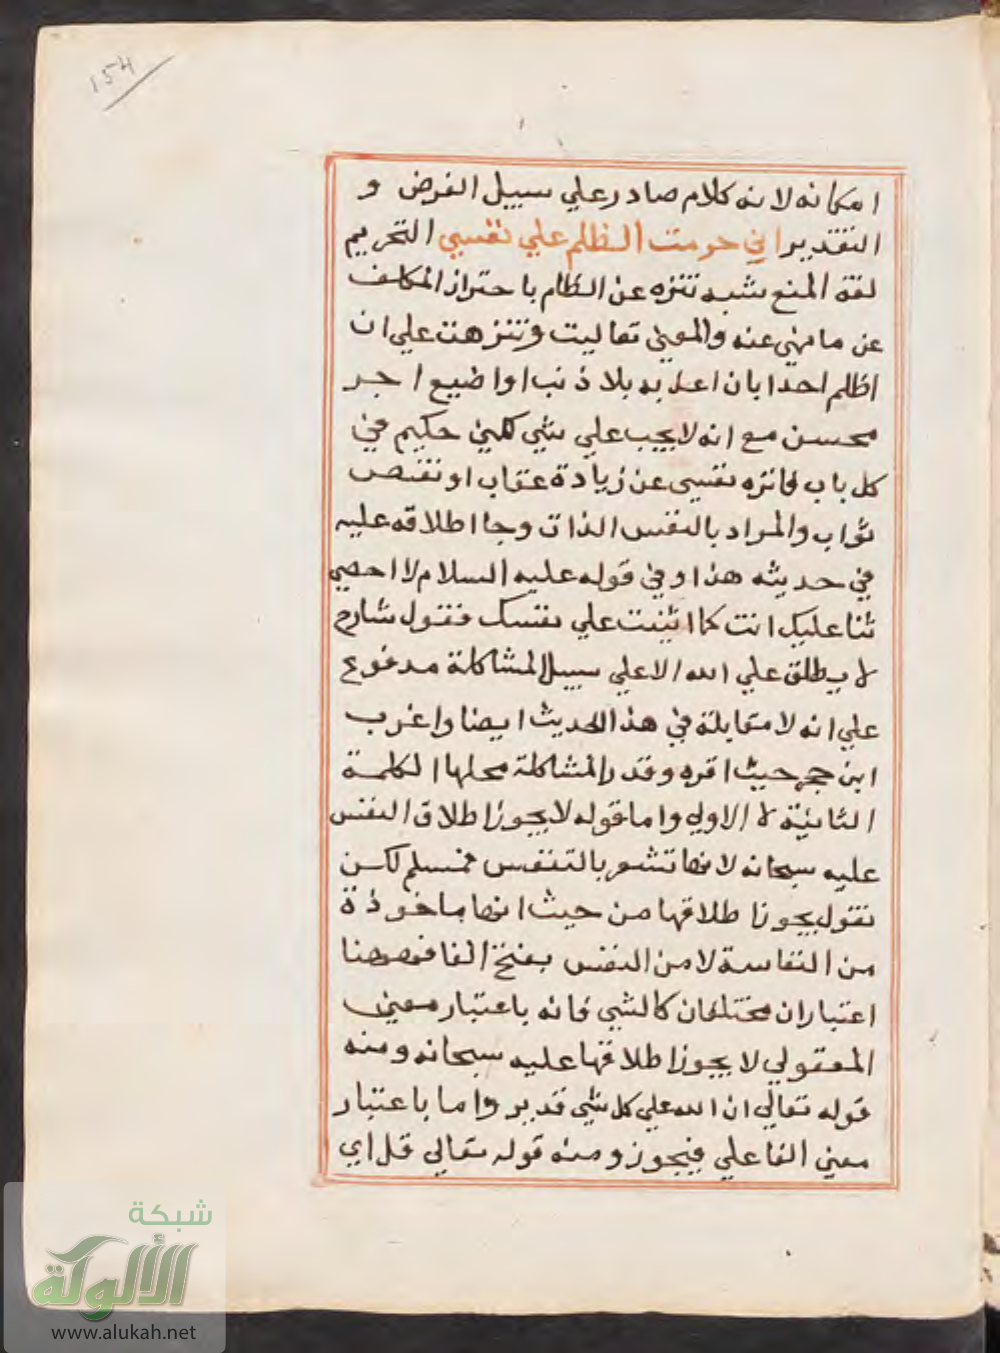 154
امكانه لانه كلام صادر علي سبيل الفرض و
التقدير اني حرمت الظلم علي نفسي التحريم
لغة المنع شبه تنزه عن الظلم باحتراز المكلف
عن ما نهي عنه والمعني تعاليت وتنزهت علي ان
اظلم احدا بان اعذبه بلا ذنب او اضيع اجر
محسن مع انه لا يجب علي شي لكني حكيم في
كل باب فانزه نفسي عن زيادة عقاب او نقص
ثواب والمراد بالنفس الذات وجا اطلاقه عليه
في حديثه هذا وفي قوله عليه السلام لا احصي
ثنا عليك انت كما اثنيت علي نفسك فقول شارح
لا يطلق علي الله الا علي سبيل المشاكلة مدفوع
علي انه لا مقابلة في هذ الحديث ايضا واغرب
ابن حجر حيث اقره وقدر المشاكلة محلها الكلمة
الثانية لا الاولي واما قوله لا يجوز اطلاق النفس
عليه سبحانه لانها تشعر بالتنفس فمسلم لكن
نقول يجوز اطلاقها من حيث انها ماخوذة
من النفاسة لا من النفس بفتح الفا فههنا
اعتباران مختلفان كالشي فانه باعتبار معني
المفعولي لا يجوز اطلاقها عليه سبحانه ومنه
قوله تعالي ان الله علي كل شي قدير واما باعتبار
معني الفاعلي فيجوز ومنه قوله تعالي قل اي
شبكة
الألوكة
www.alukah.net